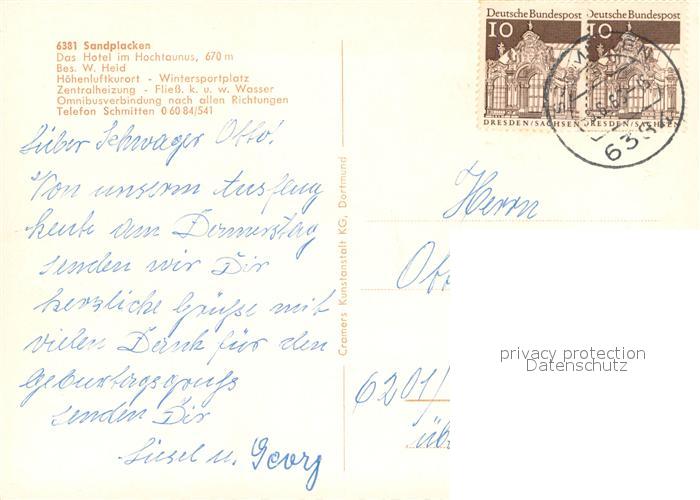 6381 Sandplacken
Das Hotel im Hochtaunus, 670 m
Bes. W. Heid
Höhenluftkurort - Wintersportplatz
Zentralheizung - Fließ. k. u. w. Wasser
Omnibusverbindung nach allen Richtungen
Telefon Schmitten 0 60 84/541
Lieber Schwager Otto!
Von unserem Ausflug
heute am Donnerstag
senden wir Dir
herzliche Grüße mit
vielen Dank für den
Geburtagsgruß
senden Dir
Liesel u. Georg
Cramers Kunstanstalt KG, Dortmund
Deutsche Bundespost
10
DRESDEN/SACHSEN
Deutsche Bundespost
10
DRESDEN/SACHSEN
Herrn
6201/
üb
privacy protection
Datenschutz